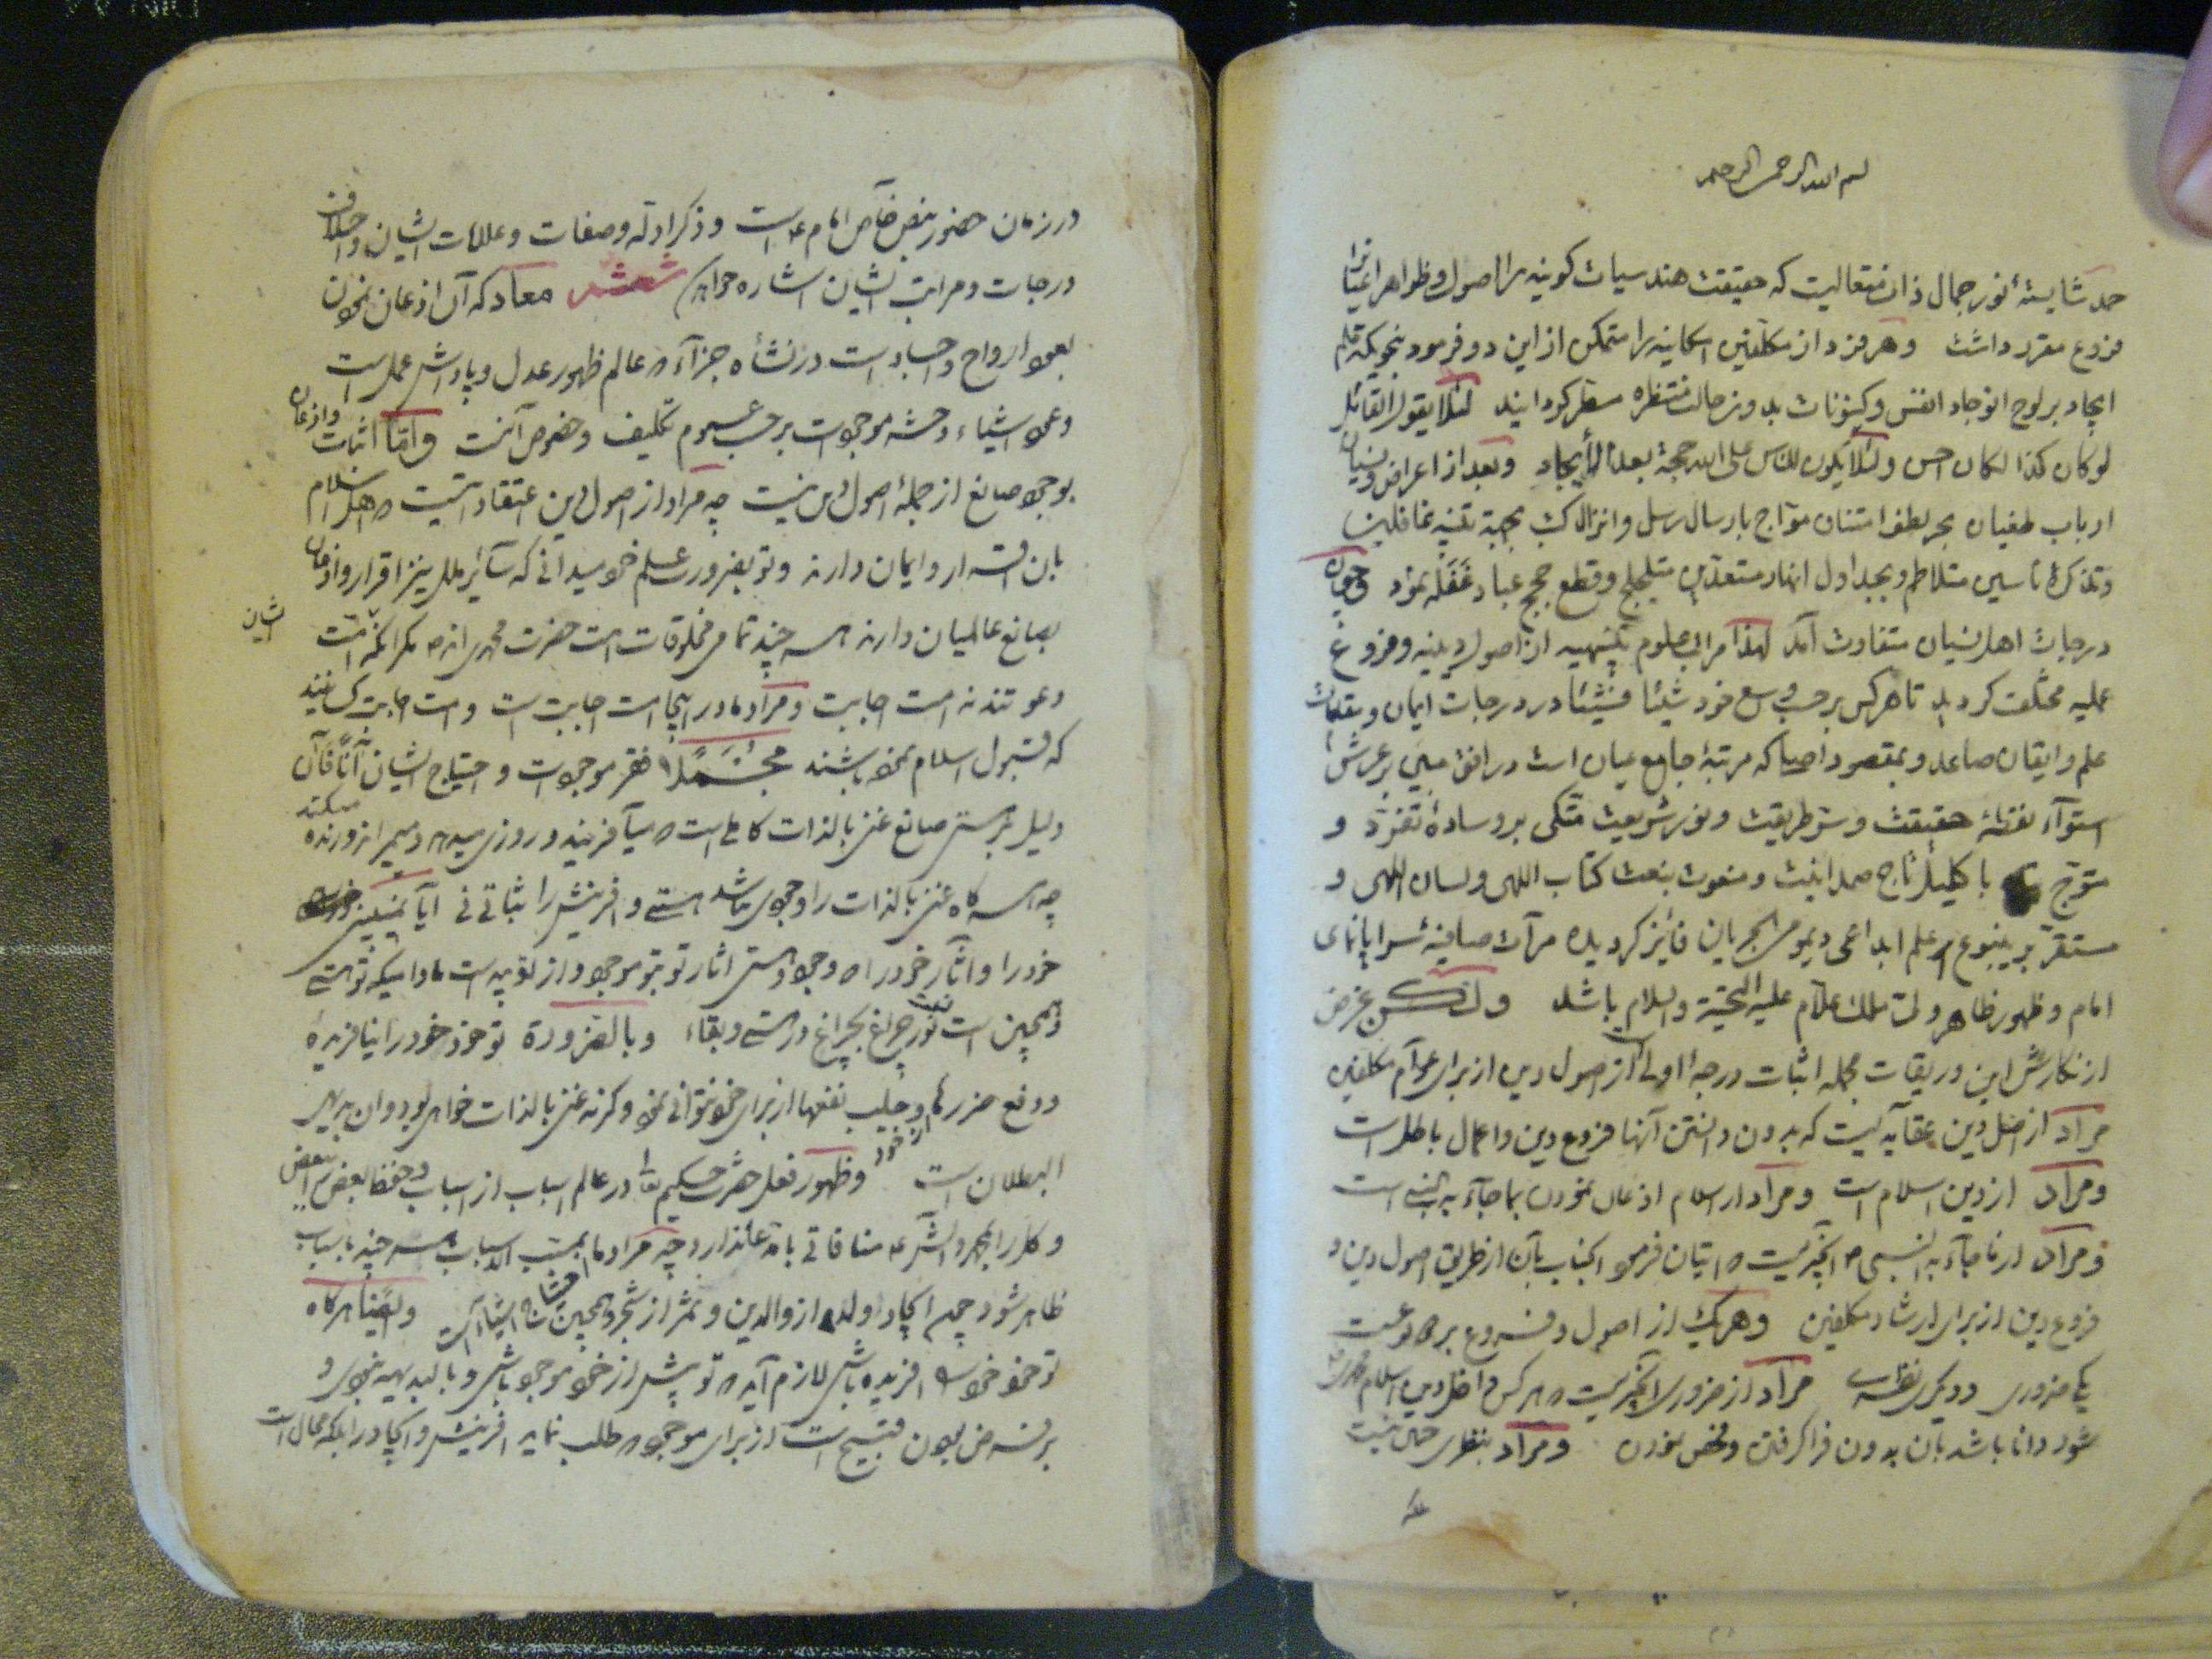 بسم الله الرحمن الرحیم
حمد شایستهٔ نور جمال ذات متعالیست که حقیقت هندسیات کونیه را اصول و ظواهر اعیانرا
فروع مقرر داشت و هر فرد از مکلفین امکانیه را متمکن از این دو فرمود بنحویکه قلم
ایجاد بر لوح انوجاد انفس و کینونات بدون حالت منتظره سطر کردانید لئلا یقول القائل
لو کان کذا لکان احسن و لئلا یکون للناس علی الله حجة بعد الایجاد و بعد از اعراض و نسیان
ارباب طغیان بحر لطف و امتنان مواج بارسال رسل و انزال کتب بجهة تنبیه غافلین
و تذکرهٔ ناسین متلاطم و بجداول انهار متعدده و قطع حجج عباد غفله نمود و چون
درجات اهل نسیان متفاوت آمد لهذا مراتب علوم از اصول دینیه و فروع
عملیه مختلف کردید تا هر کس بر حسب وسع خود شیئا فشیئا در درجات ایمان و مقامات
علم و ایقان صاعد و بمقصود اصیل که مرتبهٔ جامع عیان است در افق مبین بر عرش
استواء نقطهٔ حقیقت و سر طریقت و نور شریعت متکی بر وسادهٔ تفرد و
متوج با کلیل تاج صمدانیت و منعوت بنعت کتاب اللهی و لسان اللهی و
مستقر بر ینبوع علم ابداعی دیمومی الجریان فائز کردیده مرآت صافیهٔ سراپانمای
امام و ظهور ظاهر ملک علام علیه التحیة والسلام باشد ولکن غرض
از نکارش این وریقات مجمله اثبات درجهٔ اولی از اصول دین از برای عوام مکلفین است
مراد از اصل دین عقایدیست که بدون دانستن آنها فروع دین و اعمال باطل است
و مراد از دین اسلام است و مراد از اسلام اذعان نمودن بما جاء به النبی است
و مراد از ما جاء به النبی ص آنچیزیست که اتیان فرموده آنجناب بآن از طریق اصول دین و
فروع دین از برای ارشاد مکلفین و هر یک از اصول و فروع بر دو نوعست
یکی ضروری و دیکری نظری مراد از ضروری آنچیزیست که هر کس داخل دین اسلام
شود دانا باشد بآن بدون فرا کرفتن و فحص نمودن و مراد بنظری چنین نیست
در زمان حضور بنص خاص امام ع است و ذکر ادله و صفات و علامات ایشان و اختلاف
درجات و مراتب ایشان اشاره خواهد شد ششم معاد که آن اذعان نمودن
بعود ارواح و اجساد است در نشأه جزاء که عالم ظهور عدل و پاداش عمل است
و عود اشیاء و حشر موجودات بر حسب عموم تکلیف و خصوص آنست و اما اثبات و اذعان
بوجود صانع از جملهٔ اصول دین نیست چه مراد از اصول دین اعتقاداتیست که اهل اسلام
بآن اقرار و ایمان دارند و تو بضرورت علم خود میدانی که سائر ملل نیز اقرار و اذعان
بصانع عالمیان دارند هر چند تمامی مخلوقات امت حضرت محمدی اند ص مکر آنکه امت ایشان
دعوتند نه امت اجابت و مراد ما در اینجا امت اجابت است و امت اجابت کسانیند
که قبول اسلام نموده باشند مجملا فقر موجودات و احتیاج ایشان آنا فآن
دلیل بر هستی صانع غنی بالذات کاملی است که میآفریند و روزی میدهد و میمیراند و زنده میکند
چه هر کاه غنی بالذات را وجودی نباشد هستی و آفرینش را ثباتی نی آیا نمیبینی وجود
خود را و آثار خود را که وجود و هستی آثار تو بتو موجود و از تو پیداست مادامیکه تو هستی
و همچنین است نور چراغ بچراغ در هستی و بقاء و بالضروره تو خود خود را نیافریدهٔ
و دفع ضررها و جلب نفعها از برای خود نتوانی نمود و کرنه غنی بالذات خواهی بود و آن بدیهی
البطلان است و ظهور فعل حضرت حکیم تعالی در عالم اسباب از اسباب و حفظ بعض از بعض
ظاهر شود چون ایجاد اولاد از والدین و ثمر از شجر و همچنین است و ایضا هر کاه
تو خود خود را آفریده باشی لازم آید که تو پیش از خود موجود باشی و بالبدیهه نبودی و
بر فرض بودن قبیح است از برای موجود که طلب نماید آفرینش و ایجاد را بلکه محال است